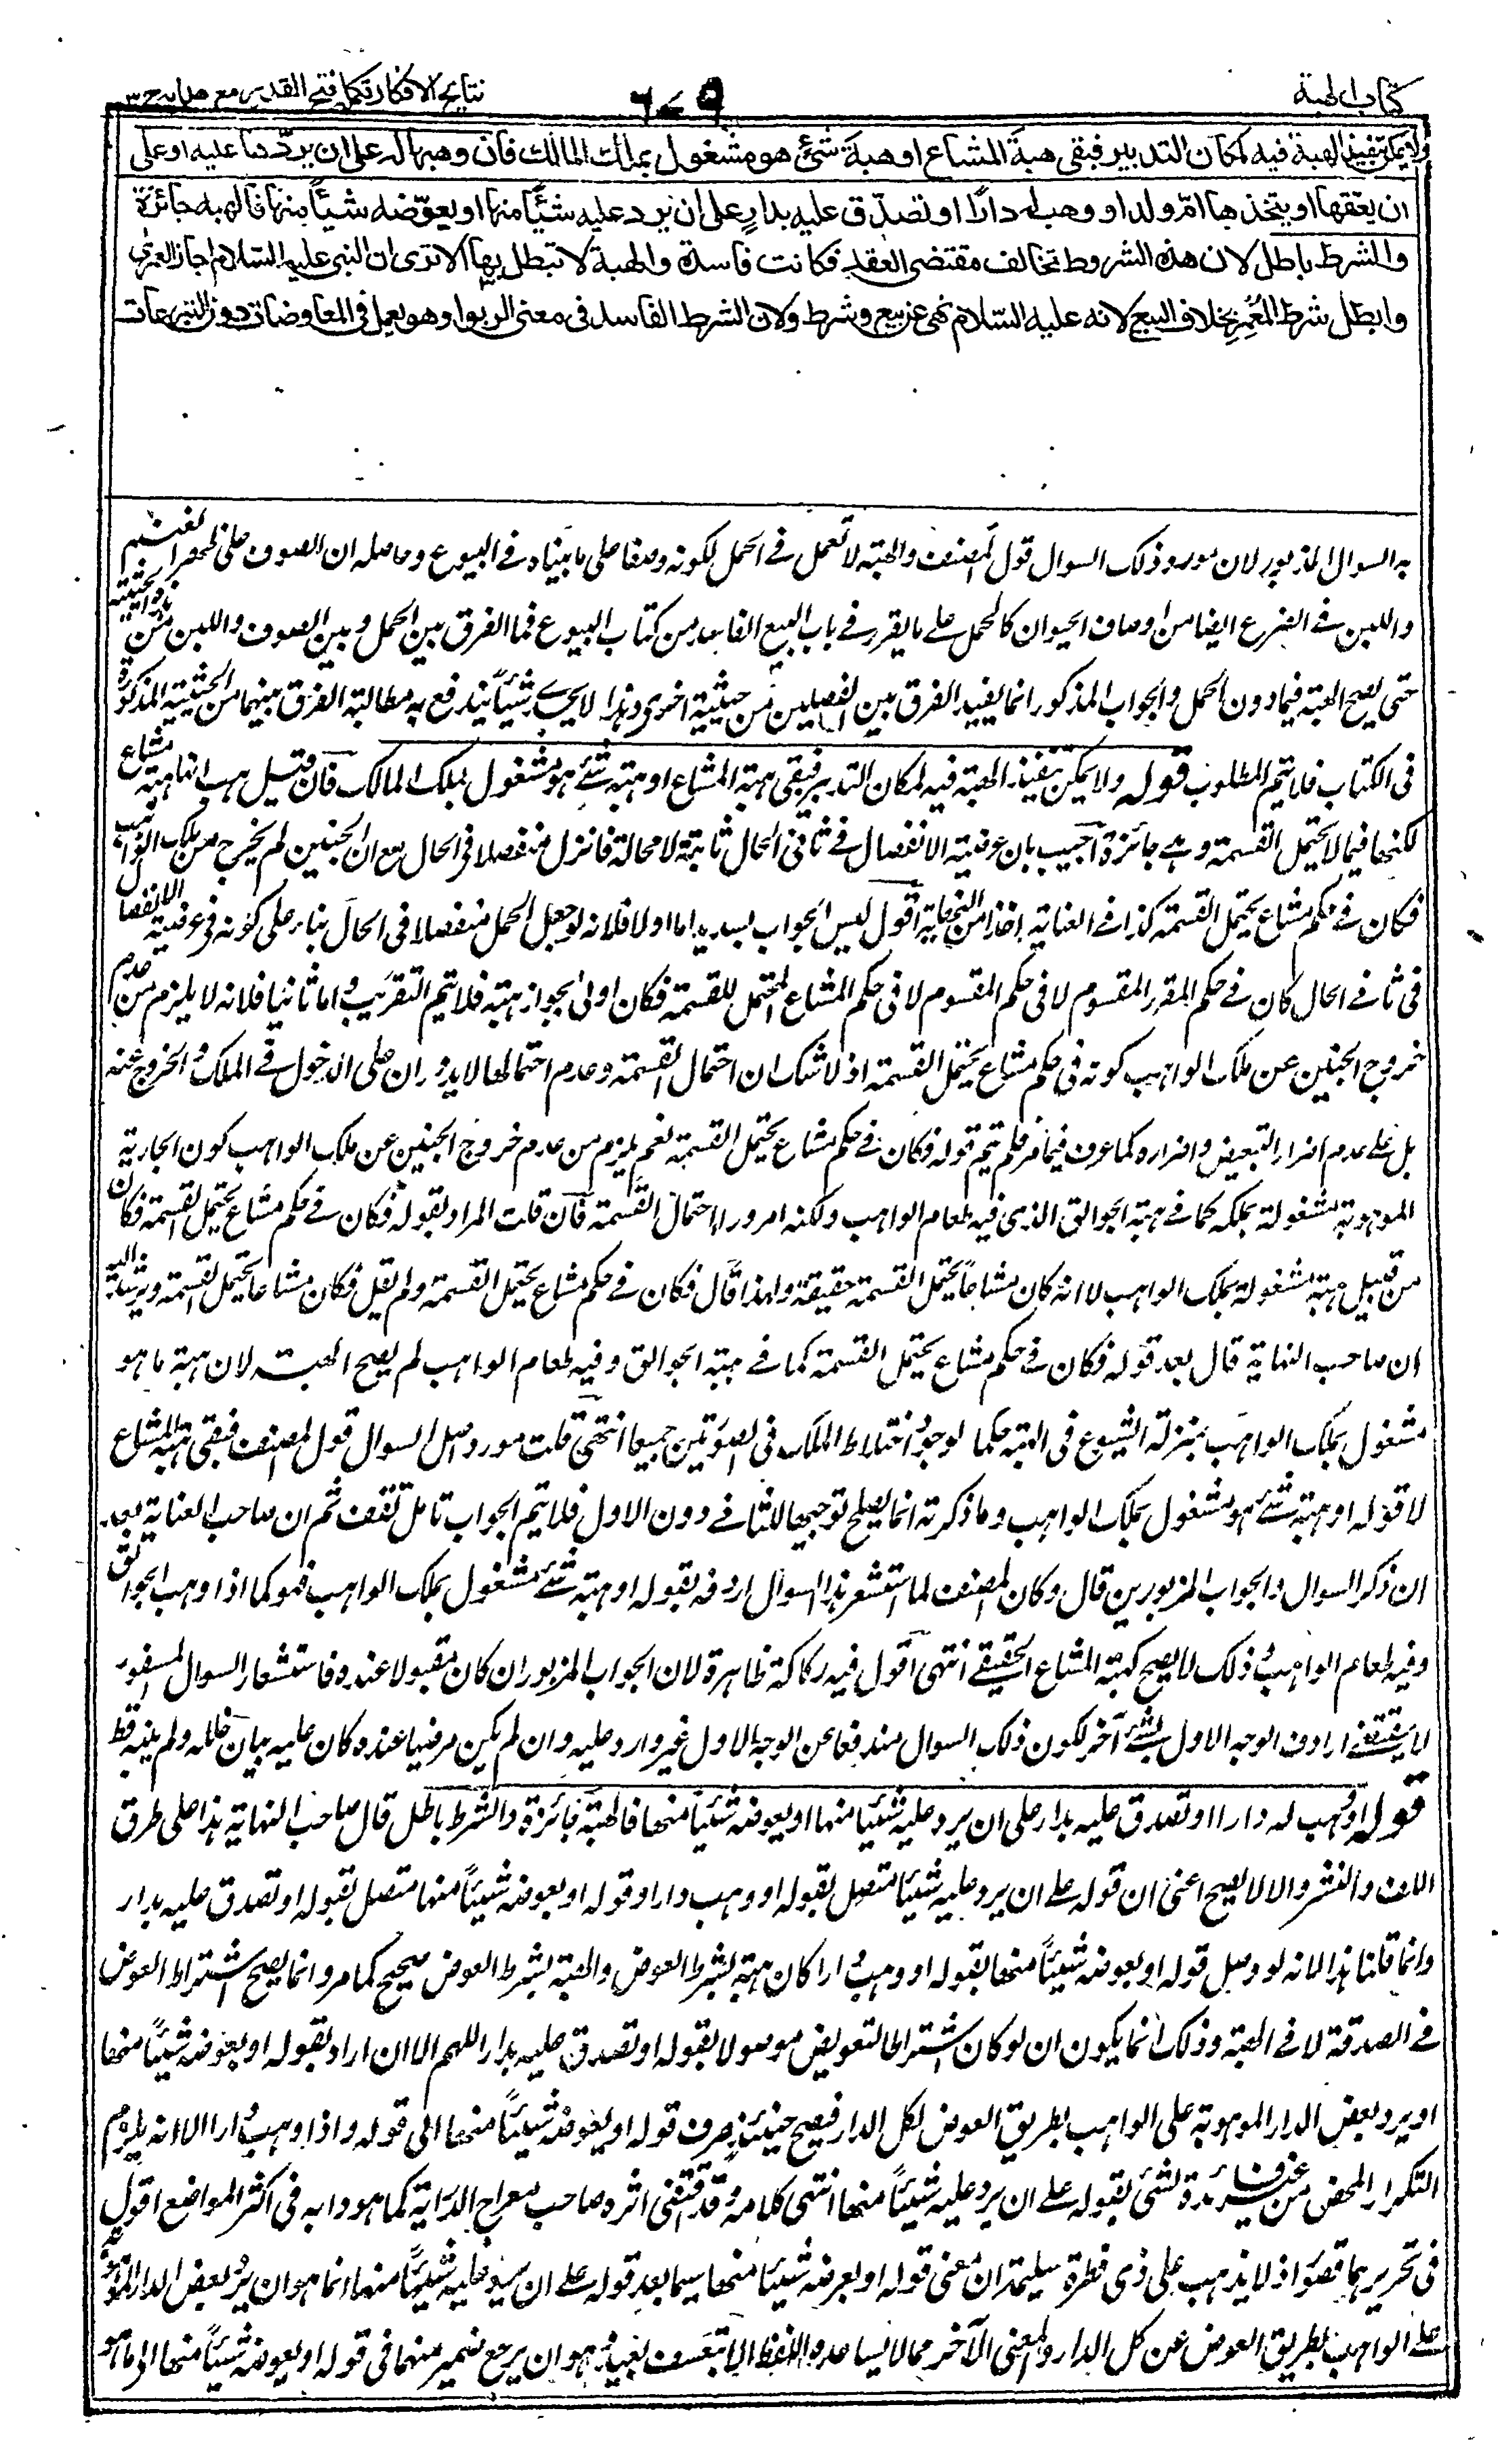 كتاب الهبة
نتائج الافكار تكملة فتح القدير مع هدايه ج ٣
ولا يمكن تنفيذ الهبة فيه لمكان التدبير فبقى هبة المشاع او هبة شئ هو مشغول بملك المالك فان وهبها له على ان يردها عليه او على
ان يعتقها او يتخذها ام ولد او وهب له دارًا او تصدق عليه بدارٍ على ان يرد عليه شيئًا منها او يعوّضه شيئًا منها فالهبة جائزة
والشرط باطل لان هذه الشروط تخالف مقتضى العقد فكانت فاسدة والهبة لا تبطل بها الا ترى ان النبى عليه السلام اجاز العمرى
وابطل شرط المُعمِر بخلاف البيع لانه عليه السلام نهى عن بيع وشرط ولان الشرط الفاسد فى معنى الربوا وهو يعمل فى المعاوضات دون التبرعات
به السوال المذبور لان مورد ذلك السوال قول المصنف والهبة لا تعمل فى الحمل لكونه وصفا على ما بيناه فى البيوع وحاصله ان الصوف على ظهر الغنم
واللبن فى الضرع ايضا من اوصاف الحيوان كالحمل على ما يقرر فى باب البيع الفاسد من كتاب البيوع فما الفرق بين الحمل وبين الصوف واللبن من هذه الحيثية
حتى يصح الهبة فيما دون الحمل والجواب المذكور انما يفيد الفرق بين الفصيلين من حيثية اخرى وهذا لا يجدى شيئًا يندفع به مطالبة الفرق بينهما من الحيثية المذكورة
فى الكتاب فلا يتم المطلوب قوله ولا يمكن تنفيذ الهبة فيه لمكان التدبير فبقى هبة المشاع او هبة شئ هو مشغول بملك المالك فان قيل هب انها هبة مشاع
لكنها فيما لا يحتمل القسمة وهى جائزة اجيب بان عرضية الانفصال فى ثانى الحال ثابتة لا محالة فانزل منفصلا فى الحال مع ان الجنين لم يخرج من ملك الواهب
فكان فى حكم مشاع يحتمل القسمة كذا فى العناية اخذا من النهاية اقول ليس الجواب بسديد اما اولا فلانه لو جعل الحمل منفصلا فى الحال بناء على كونه فى عرضية الانفصال
فى ثانى الحال كان فى حكم المقرر المقسوم لا فى حكم المقسوم لا فى حكم المشاع المحتمل للقسمة فكان اولى لجواز هبته فلا يتم التقريب واما ثانيا فلانه لا يلزم من عدم
خروج الجنين عن ملك الواهب كونه فى حكم مشاع يحتمل القسمة اذ لا شك ان احتمال القسمة وعدم احتمالها لا يدوران على الدخول فى الملك والخروج عنه
بل على عدم اضرار التبعيض واضراره كما عرف فيما مر فلم يتم قوله فكان فى حكم مشاع يحتمل القسمة نعم يلزم من عدم خروج الجنين عن ملك الواهب كون الجارية
الموهوبة مشغولة بملكه كما فى هبة الجوالق الذى فيه طعام الواهب ولكنه امر وراء احتمال القسمة فان قلت المراد بقوله فكان فى حكم مشاع يحتمل القسمة فكان
من قبيل هبة مشغولة بملك الواهب لا انه كان مشاعًا يحتمل القسمة حقيقة ولهذا قال فكان فى حكم مشاع يحتمل القسمة ولم يقل فكان مشاعا يحتمل القسمة ويرشد اليه
ان صاحب النهاية قال بعد قوله فكان فى حكم مشاع يحتمل القسمة كما فى هبة الجوالق وفيه طعام الواهب لم يصح الهبة لان هبة ما هو
مشغول بملك الواهب بمنزلة الشيوع فى الهبة حكما لوجود اختلاط الملك فى الصورتين جميعا انتهى قلت مورد اصل السوال قول المصنف فبقى هبة المشاع
لا قوله او هبة شئ هو مشغول بملك الواهب وما ذكرته انما يصلح توجيها للثانى دون الاول فلا يتم الجواب تامل تقف ثم ان صاحب العناية بعد
ان ذكر السوال والجواب المزبورين قال وكان المصنف لما استشعر هذا السوال اردفه بقوله او هبة شئ مشغول بملك الواهب فهو كما اذا وهب الجوالق
وفيه طعام الواهب وذلك لا يصح كهبة المشاع الحقيقى انتهى اقول فيه ركاكة ظاهرة لان الجواب المزبور ان كان مقبولا عنده فاستشعار السوال المسفور
لا يقتضى ارداف الوجه الاول بشئ آخر لكون ذلك السوال مندفعا عن الوجه الاول غير وارد عليه وان لم يكن مرضيا عنده كان عليه بيان خلله ولم ينبه قط
قوله او وهب له دارا او تصدق عليه بدار على ان يرد عليه شيئًا منها او يعوضه شيئًا منها فالهبة جائزة والشرط باطل قال صاحب النهاية هذا على طرق
اللف والنشر والا لا يصح اعنى ان قوله على ان يرد عليه شيئًا متصل بقوله او وهب دارا وقوله او يعوضه شيئًا منها متصل بقوله او تصدق عليه بدار
وانما قلنا هذا لانه لو وصل قوله او يعوضه شيئًا منها بقوله او وهب دارا كان هبة بشرط العوض والهبة بشرط العوض صحيح كما مر وانما يصح اشتراط العوض
فى الصدقة لا فى الهبة وذلك انما يكون ان لو كان اشتراط التعويض موصولا بقوله او تصدق عليه بدار اللهم الا ان اراد بقوله او يعوضه شيئًا منها
او يرد بعض الدار الموهوبة على الواهب بطريق العوض لكل الدار فيصح حينئذ صرف قوله او يعوضه شيئًا منها الى قوله واذا وهب دارا الا انه يلزم
التكرار المحض من غير فائدة لشئ بقوله على ان يرد عليه شيئًا منها انتهى كلامه وقد اقتفى اثره صاحب معراج الدراية كما هو دابه فى اكثر المواضع اقول
فى تحريرهما قصور اذ لا يذهب على ذى فطرة سليمة ان معنى قوله او يعوضه شيئًا منها سيما بعد قوله على ان يرد عليه شيئًا منها انما هو ان يرد بعض الدار الموهوبة
على الواهب بطريق العوض عن كل الدار والمعنى الآخر مما لا يساعده اللفظ الا بتعسف بعيد هو ان يرجع ضمير منها فى قوله او يعوضه شيئًا منها الى ما هو